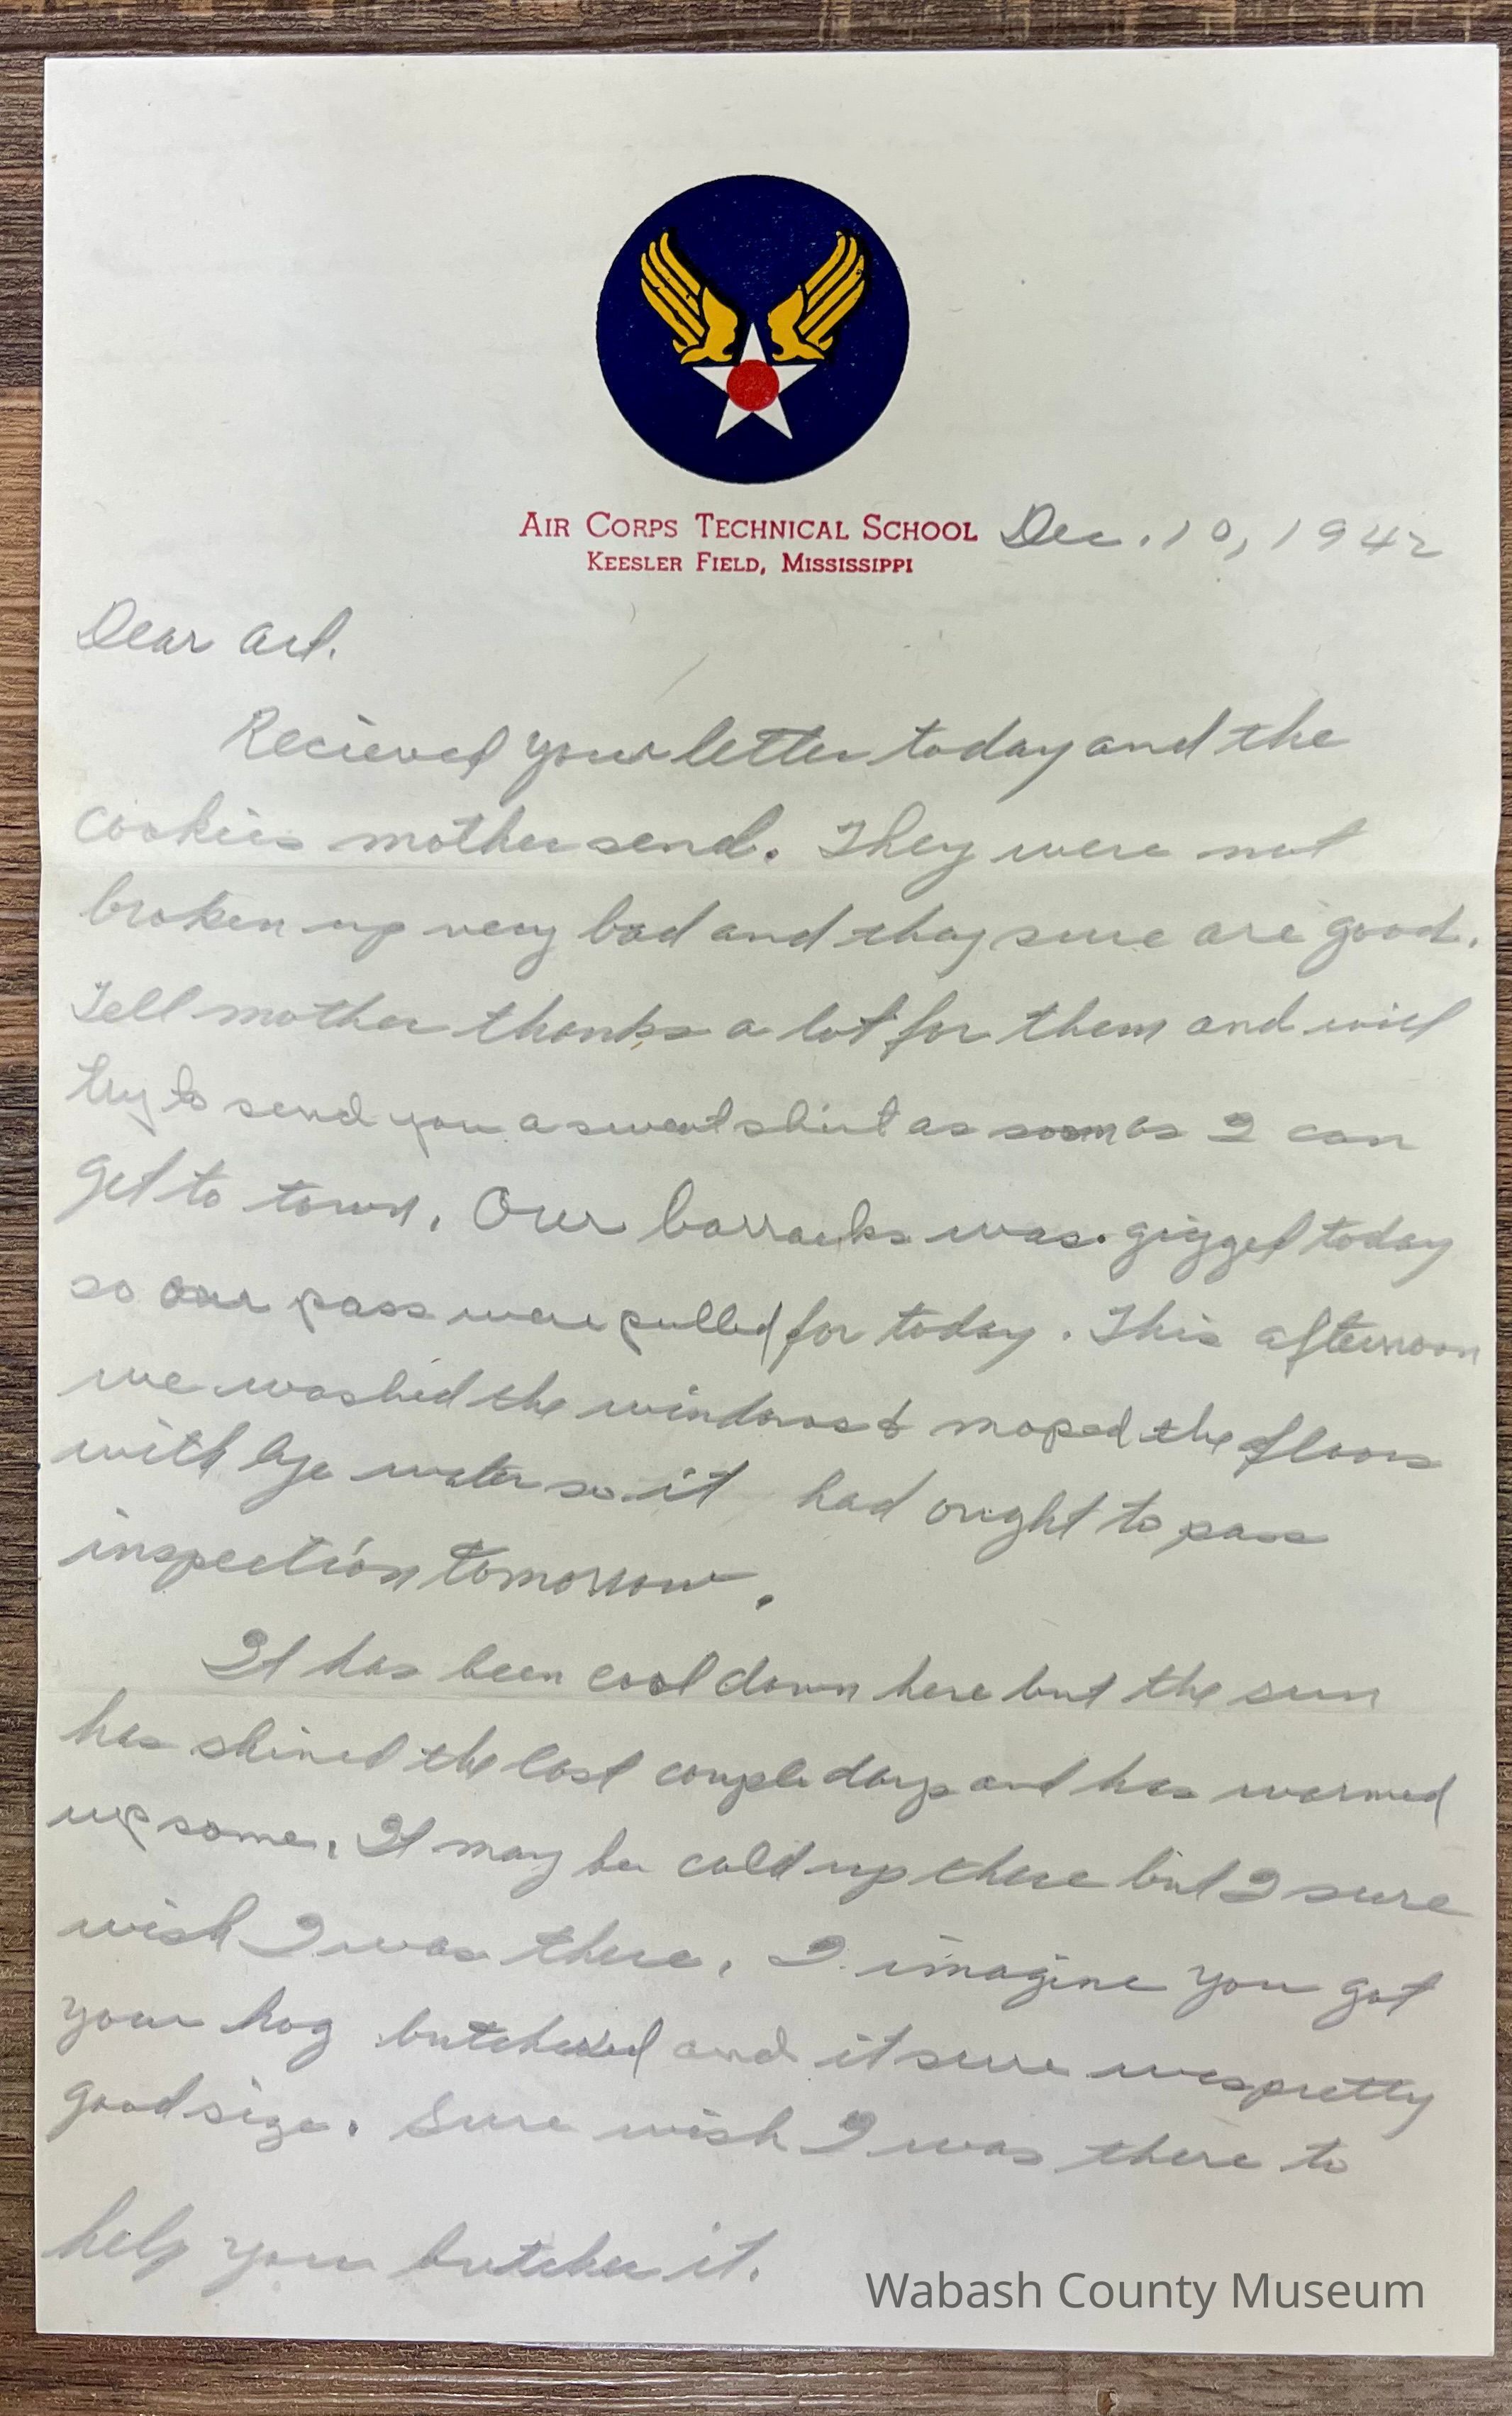 AIR CORPS TECHNICAL SCHOOL Dec. 10, 1942
KEESLER FIELD, MISSISSIPPI
Dear Art.
Recieved your letter today and the
cookies mother send. They were not
broken up very bad and they sure are good.
Tell mother thanks a lot for them and will
try to send you a sweat shirt as soon as I can
get to town. Our barracks was gigged today
so our pass were pulled for today. This afternoon
we washed the windows & moped the floors
with lye water so it had ought to pass
inspection tomorrow.
It has been cool down here but the sun
has shined the last couple days and has warmed
up some. It may be cold up there but I sure
wish I was there. I imagine you got
your hog butchered and it sure was pretty
good size. Sure wish I was there to
help you butcher it.
Wabash County Museum